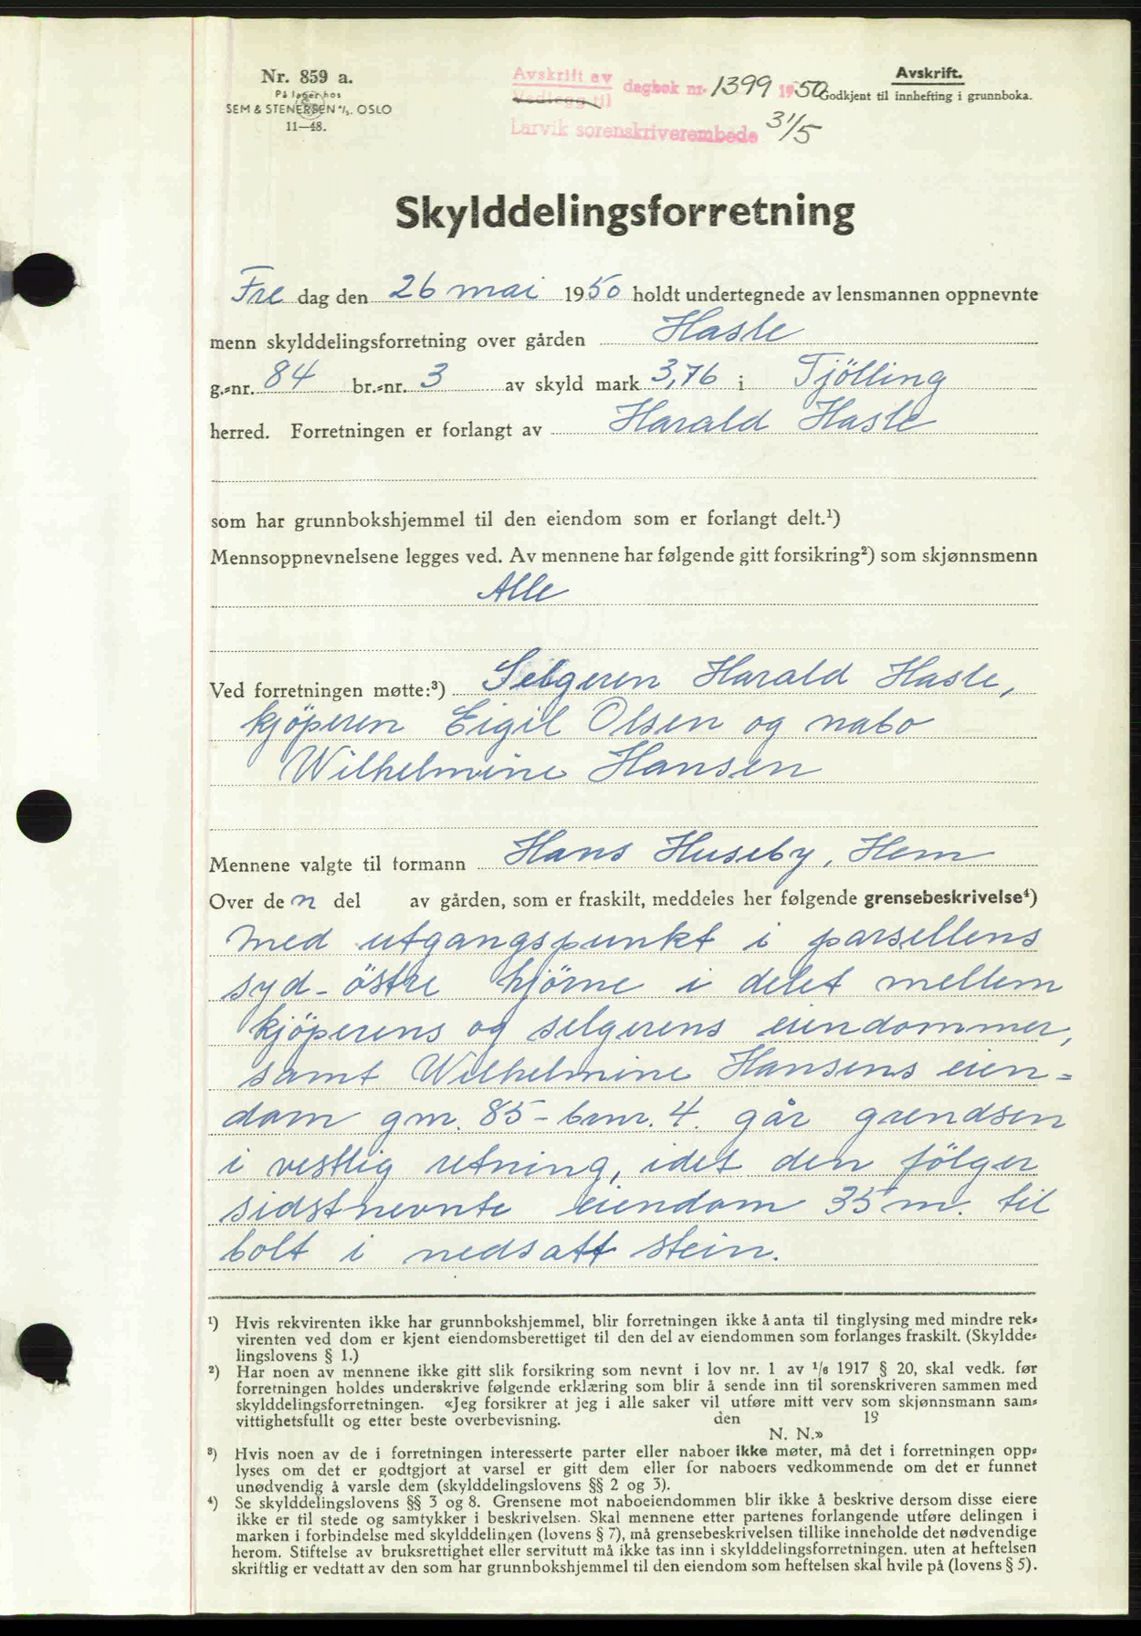 Nr. 859 a.
På lager hos
SEM & STENERSEN A/S. OSLO
11—48.
Avskrift av dagbok nr. 1399 1950
Vedlegg til
Larvik sorenskriverembede 31/5
Avskrift.
Godkjent til innhefting i grunnboka.
Skylddelingsforretning
Fre dag den 26 mai 1950 holdt undertegnede av lensmannen oppnevnte
menn skylddelingsforretning over gården Hasle
g.-nr. 84 br.-nr. 3 av skyld mark 3,76 i Tjölling
herred. Forretningen er forlangt av Harald Hasle
som har grunnbokshjemmel til den eiendom som er forlangt delt.¹)
Mennsoppnevnelsene legges ved. Av mennene har følgende gitt forsikring²) som skjønnsmenn
Alle
Ved forretningen møtte:³) Selgeren Harald Hasle,
kjöperen Eigil Olsen og nabo
Wilhelmine Hansen
Mennene valgte til formann Hans Huseby, Hem
Over den del av gården, som er fraskilt, meddeles her følgende grensebeskrivelse⁴)
Med utgangspunkt i parsellens
syd-östre hjörne i delet mellem
kjöperens og selgerens eiendommer,
samt Wilhelmine Hansens eien=
dom gnr. 85 - brnr. 4. går grendsen
i vestlig retning, idet den fölger
sidstnevnte eiendom 35 m. til
bolt i nedsatt stein.
¹) Hvis rekvirenten ikke har grunnbokshjemmel, blir forretningen ikke å anta til tinglysing med mindre rek-
virenten ved dom er kjent eiendomsberettiget til den del av eiendommen som forlanges fraskilt. (Skyldde-
lingslovens § 1.)
²) Har noen av mennene ikke gitt slik forsikring som nevnt i lov nr. 1 av 1/6 1917 § 20, skal vedk. før
forretningen holdes underskrive følgende erklæring som blir å sende inn til sorenskriveren sammen med
skylddelingsforretningen. «Jeg forsikrer at jeg i alle saker vil utføre mitt verv som skjønnsmann sam-
vittighetsfullt og etter beste overbevisning. den 19
N. N.»
³) Hvis noen av de i forretningen interesserte parter eller naboer ikke møter, må det i forretningen opp-
lyses om det er godtgjort at varsel er gitt dem eller for naboers vedkommende om det er funnet
unødvendig å varsle dem (skylddelingslovens §§ 2 og 3).
⁴) Se skylddelingslovens §§ 3 og 8. Grensene mot naboeiendommen blir ikke å beskrive dersom disse eiere
ikke er til stede og samtykker i beskrivelsen. Skal mennene etter partenes forlangende utføre delingen i
marken i forbindelse med skylddelingen (lovens § 7), må grensebeskrivelsen tillike inneholde det nødvendige
herom. Stiftelse av bruksrettighet eller servitutt må ikke tas inn i skylddelingsforretningen, uten at heftelsen
skriftlig er vedtatt av den som har grunnbokshjemmel til den eiendom som heftelsen skal hvile på (lovens § 5).